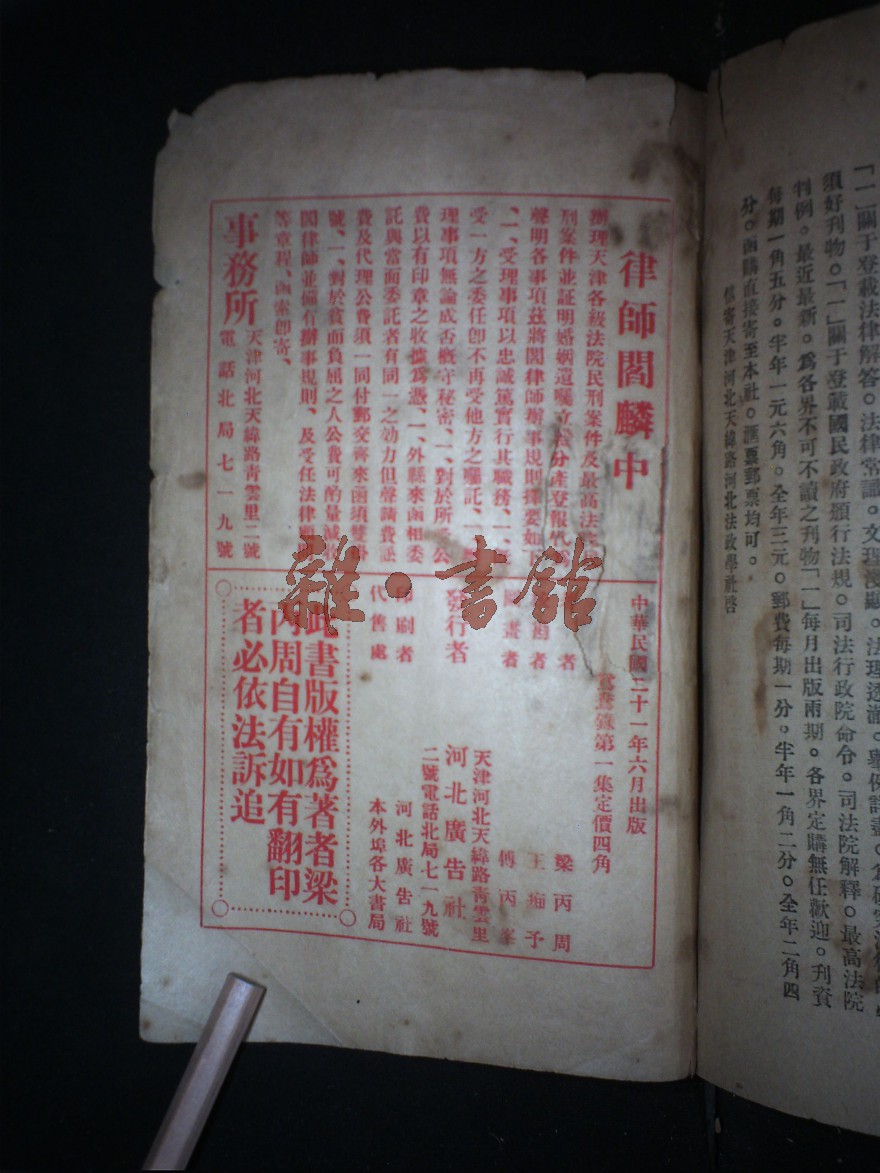 「一」關于登載法律解答。法律常識。文理淺顯。法理透澈。舉例詳盡。
須好刊物。「一」關于登載國民政府頒行法規。司法行政院命令。司法院解釋。最高法院
判例。最近最新。爲各界不可不讀之刊物「一」每月出版兩期。各界定購無任歡迎。刊資
每期一角五分。半年一元六角。全年三元。郵費每期一分。半年一角二分。全年二角四
分。函購直接寄至本社。滙票郵票均可。
信寄天津河北天緯路河北法政學社啓
律師閻麟中
辦理天津各級法院民刑案件及最高法院
刑案件並証明婚姻遺囑立 分產登報
聲明各事項茲將閻律師辦事規則擇要如下
一、受理事項以忠誠篤實行其職務、一、
受一方之委任卽不再受他方之囑託、一、
理事項無論成否槪守秘密、一、對於所 公
費以有印章之收據爲憑、一、外縣來函相委
託與當面委託者有同一之効力但聲請費
費及代理公費須一同付郵交齊來函須雙掛
號、一、對於貧而負屈之人公費可酌量減
閻律師並備有辦事規則、及受任法律顧
等章程、函索卽寄、
事務所
天津河北天緯路靑雲里二號
電話北局七一九號
中華民國二十一年六月出版
鴛鴦錄第一集定價四角
者 梁丙周
者 王痴予
畫者 傅丙峯
發行者 天津河北天緯路靑雲里
河北廣告社
二號電話北局七一九號
印刷者 河北廣告社
代售處 本外埠各大書局
此書版權爲著者梁
丙周自有如有翻印
者必依法訴追
雜·書館